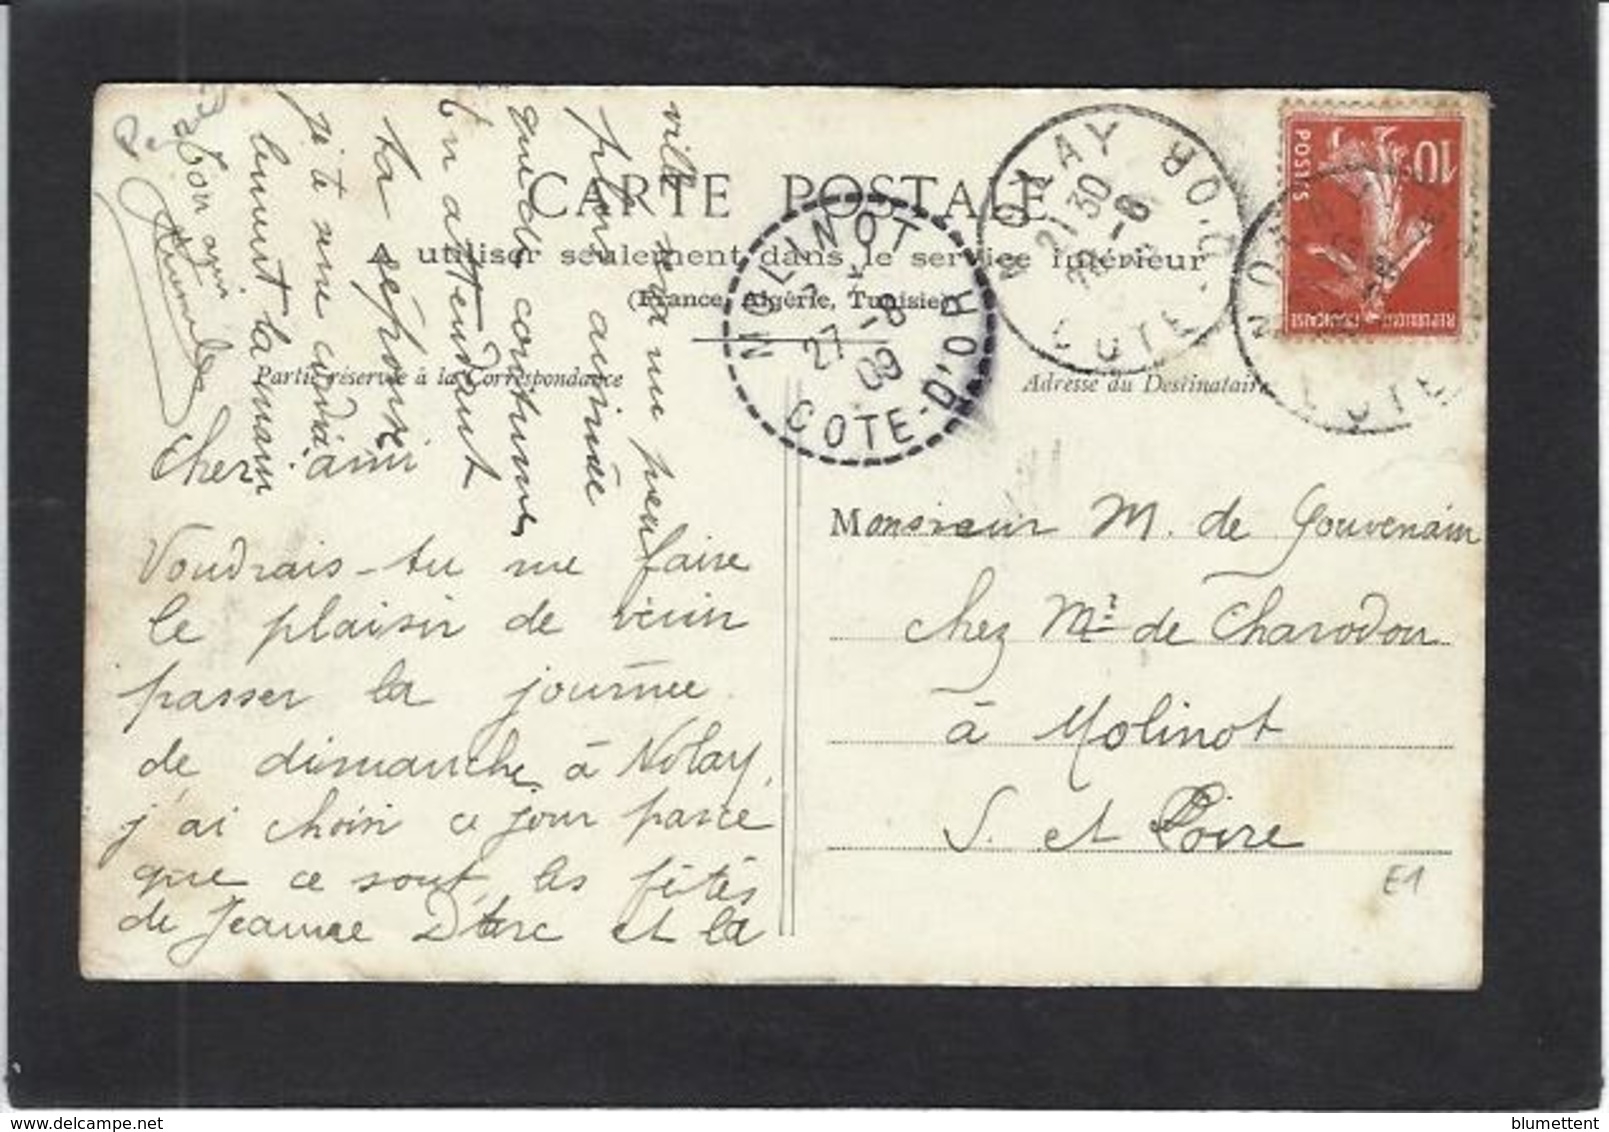 CARTE POSTALE
A utiliser seulement dans le service intérieur
(France, Algérie, Tunisie)
Partie réservée à la Correspondance
Adresse du Destinataire
Cher ami
Voudrais-tu me faire
le plaisir de venir
passer la journée
de dimanche à Nolay,
j'ai choisi ce jour parce
que ce sont les fêtes
de Jeanne D'Arc et la
ville sera un peu
plus animée
que de coutume
En attendant
ta réponse
je te serre cordia
lement la main
Ton ami
Monsieur M. de Gouvenain
chez Mr de Charodon
à Molinot
S. et Loire
E1
MOLINOT
27 -8
09
COTE-D'OR
NOLAY
21 30
-8
COTE-D'OR
NOLAY
COTE
10c
POSTES
REPUBLIQUE FRANÇAISE
blumettent